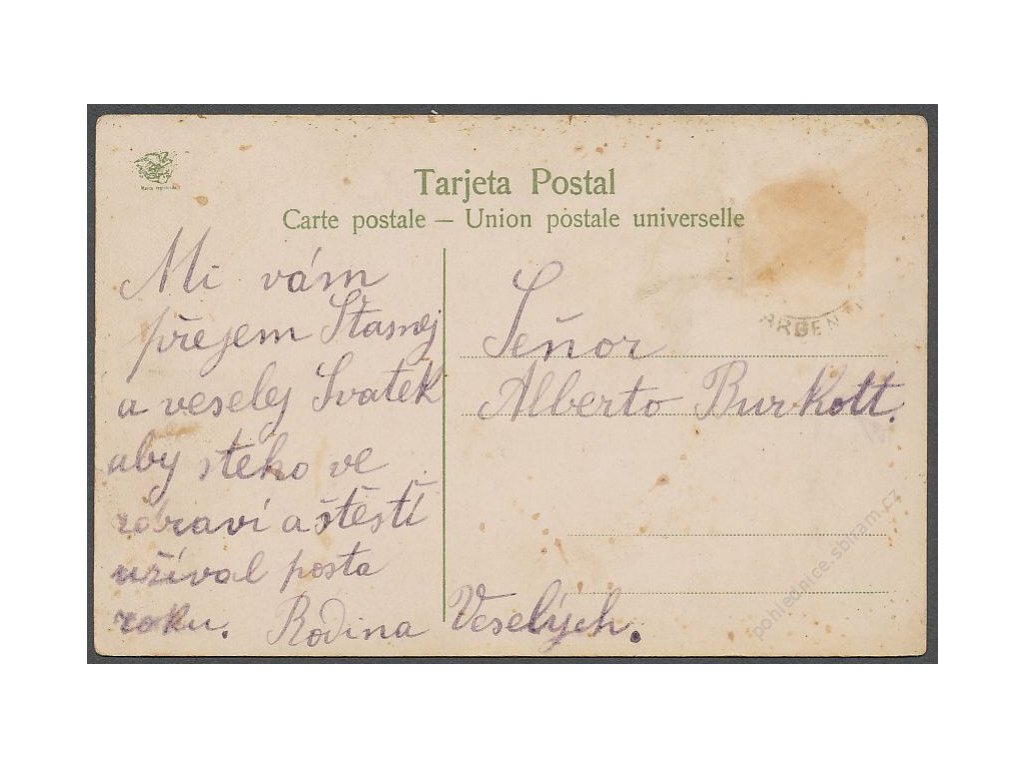 Tarjeta Postal
Carte postale — Union postale universelle
Mi vám
přejem Štasnej
a veselej Svatek
aby steho ve
zdraví a štěstí
užíval posta
roku. Rodina Veselých.
Señor
Alberto Burkott.
ARGEN
pohlednice.sbiram.cz